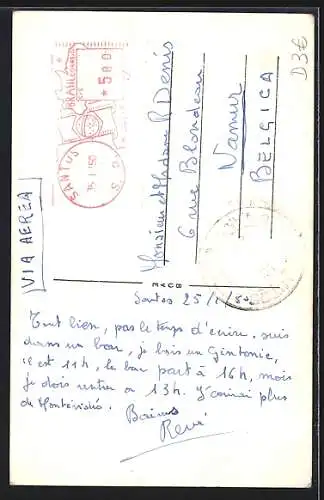 D3€
BRASIL CORREIO
*500
SANTOS
25 I 150
S. P.
Monsieur et Madame R Denis
6 rue Blondeau
Namur
BELGICA
VIA AEREA
Santos 25/1/50
Tout bien, pas le temps d'écrire. suis
dans un bar, je bois un Gintonic,
il est 11h, le bar part à 16h, mais
je dois rentrer à 13h. J'écrirai plus
de Montévidéo. Baisers
René